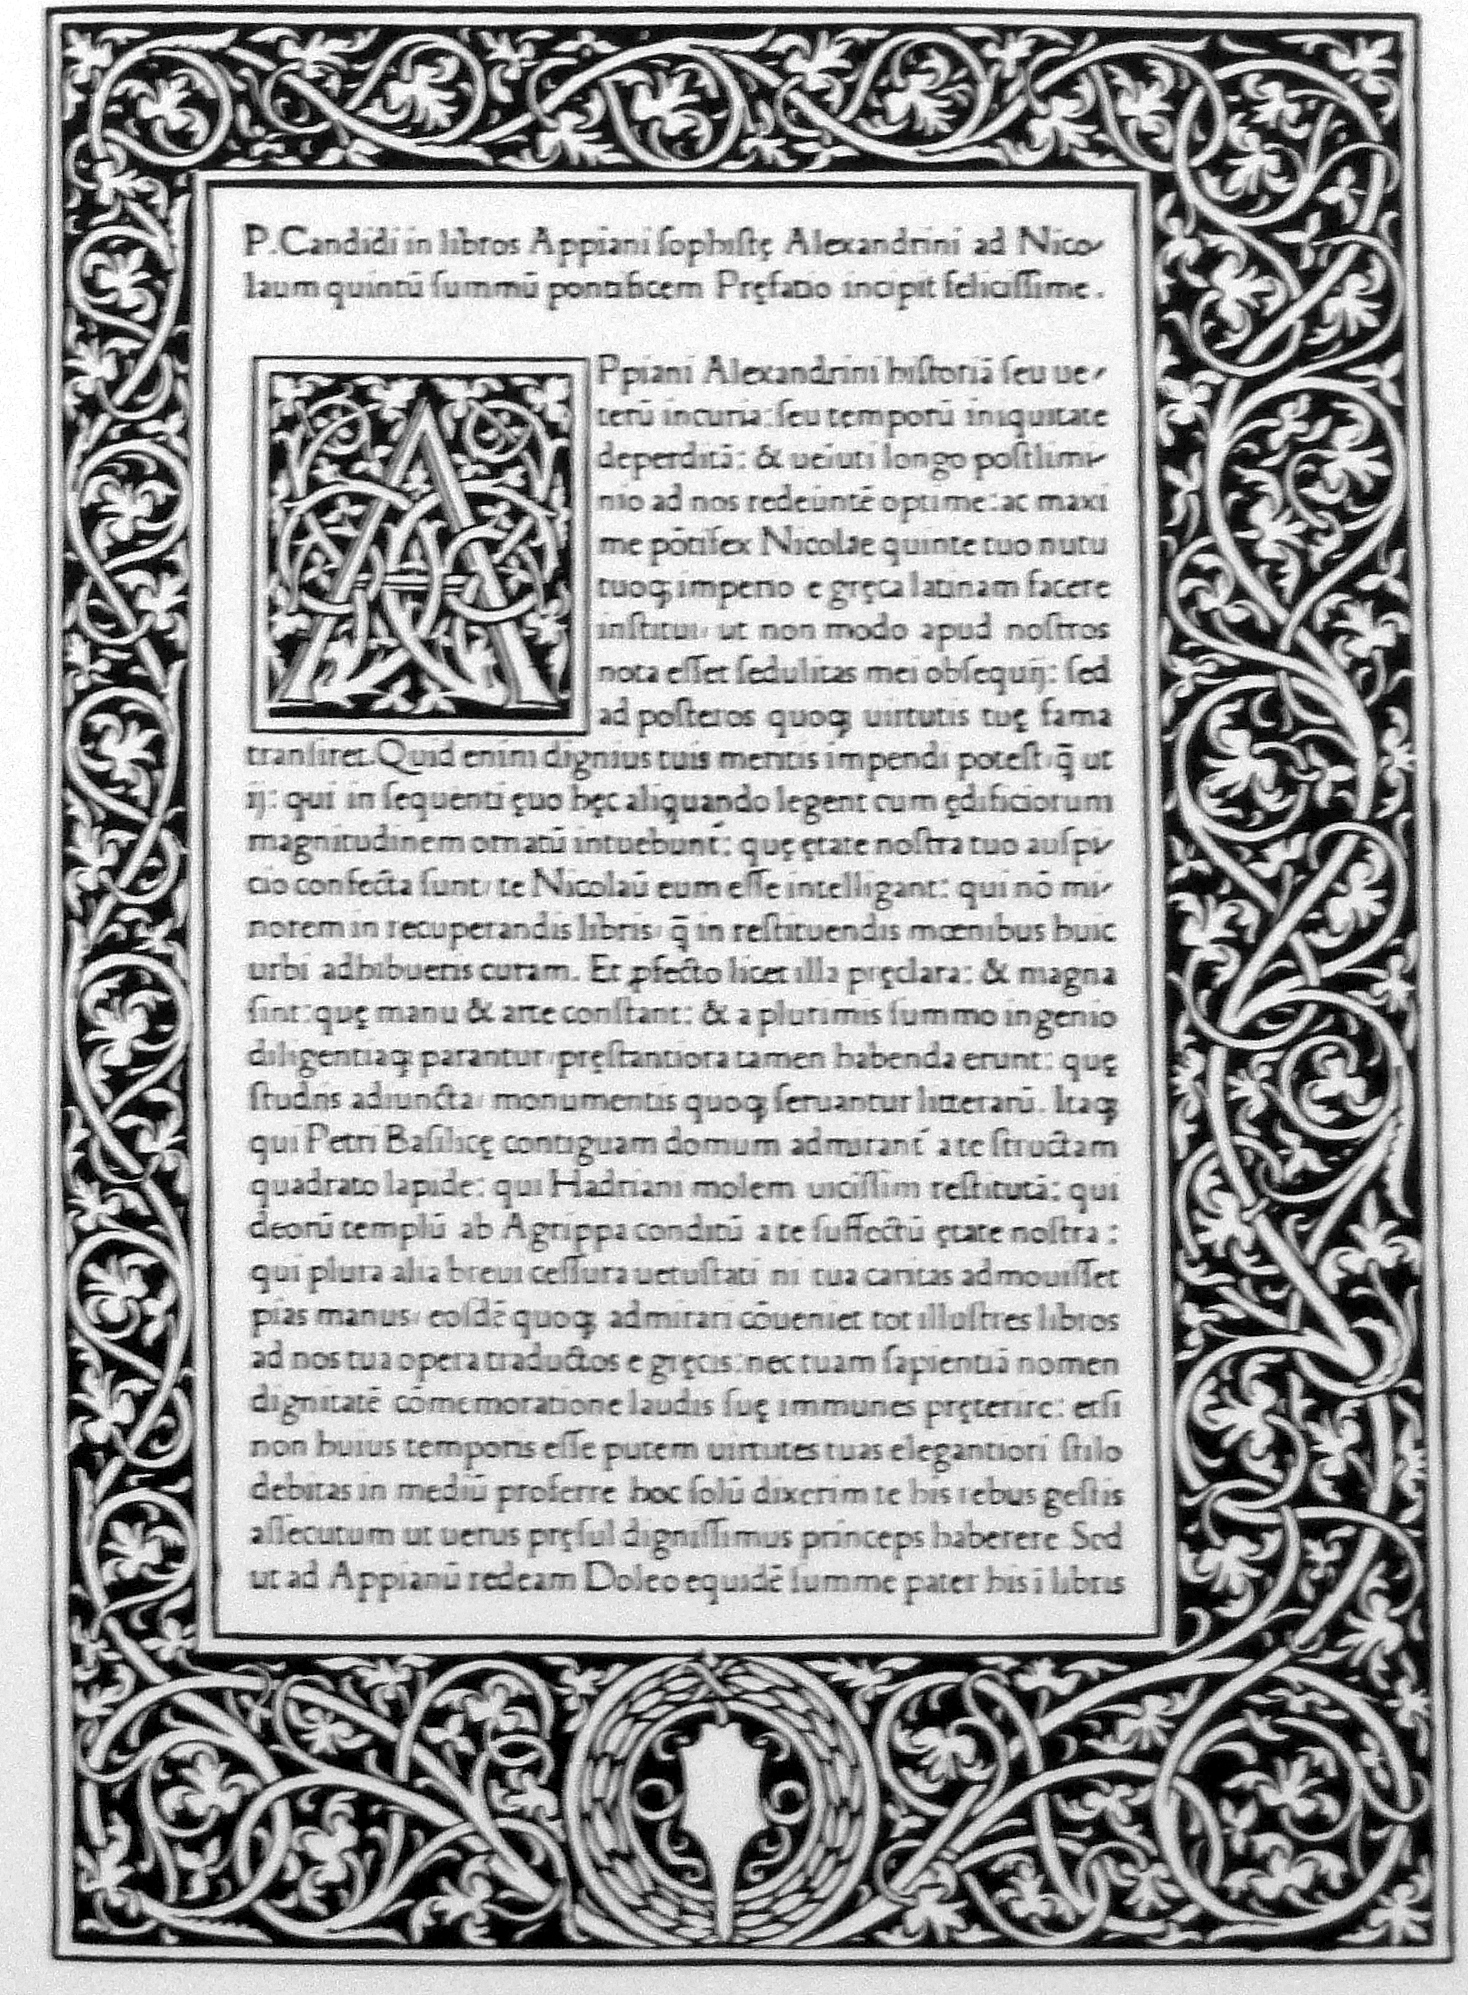 P.Candidi in libros Appiani ſophiſtę Alexandrini ad Nico-
laum quintū ſummū pontificem Pręfatio incipit feliciſſime.
APpiani Alexandrini hiſtoriā ſeu ue-
terū incuria: ſeu temporū iniquitate
deperditā: & ueluti longo poſtlimi-
nio ad nos redeūntē optime: ac maxi
me pōtifex Nicolae quinte tuo nutu
tuoqꝫ imperio e gręca latinam facere
inſtitui, ut non modo apud noſtros
nota eſſet ſedulitas mei obſequij: ſed
ad poſteros quoqꝫ uirtutis tuę fama
tranſiret. Quid enim dignius tuis meritis impendi poteſt, q̄ ut
ij: qui in ſequenti ęuo hęc aliquando legent cum ędificiorum
magnitudinem ornatū intuebunt́: quę ętate noſtra tuo auſpi-
cio confecta ſunt, te Nicolaū eum eſſe intelligant: qui nō mi-
norem in recuperandis libris, q̄ in reſtituendis mœnibus huic
urbi adhibueris curam. Et ꝓfecto licet illa pręclara: & magna
ſint: quę manu & arte conſtant: & a plurimis ſummo ingenio
diligentiaqꝫ parantur, pręſtantiora tamen habenda erunt: quę
ſtudiis adiuncta, monumentis quoqꝫ ſeruantur litterarū. Itaqꝫ
qui Petri Baſilicę contiguam domum admirant́ a te ſtructam
quadrato lapide: qui Hadriani molem uiciſſim reſtitutā: qui
deorū templū ab Agrippa conditū a te ſuffectū ętate noſtra:
qui plura alia breui ceſſura uetuſtati ni tua caritas admouiſſet
pias manus, eoſdē quoqꝫ admirari cōueniet tot illuſtres libros
ad nos tua opera traductos e gręcis: nec tuam ſapientiā nomen
dignitatē cōmemoratione laudis ſuę immunes pręterire: etſi
non huius temporis eſſe putem uirtutes tuas elegantiori ſtilo
debitas in mediū proferre hoc ſolū dixerim te his rebus geſtis
aſſecutum ut uerus pręſul digniſſimus princeps haberere Sed
ut ad Appianū redeam Doleo equidē ſumme pater his ī libris